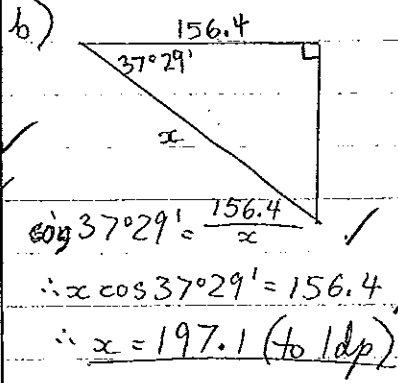 b)
156.4
37°29'
x
cos 37°29' = 156.4/x ✓
∴ x cos 37°29' = 156.4
∴ x = 197.1 (to 1dp)